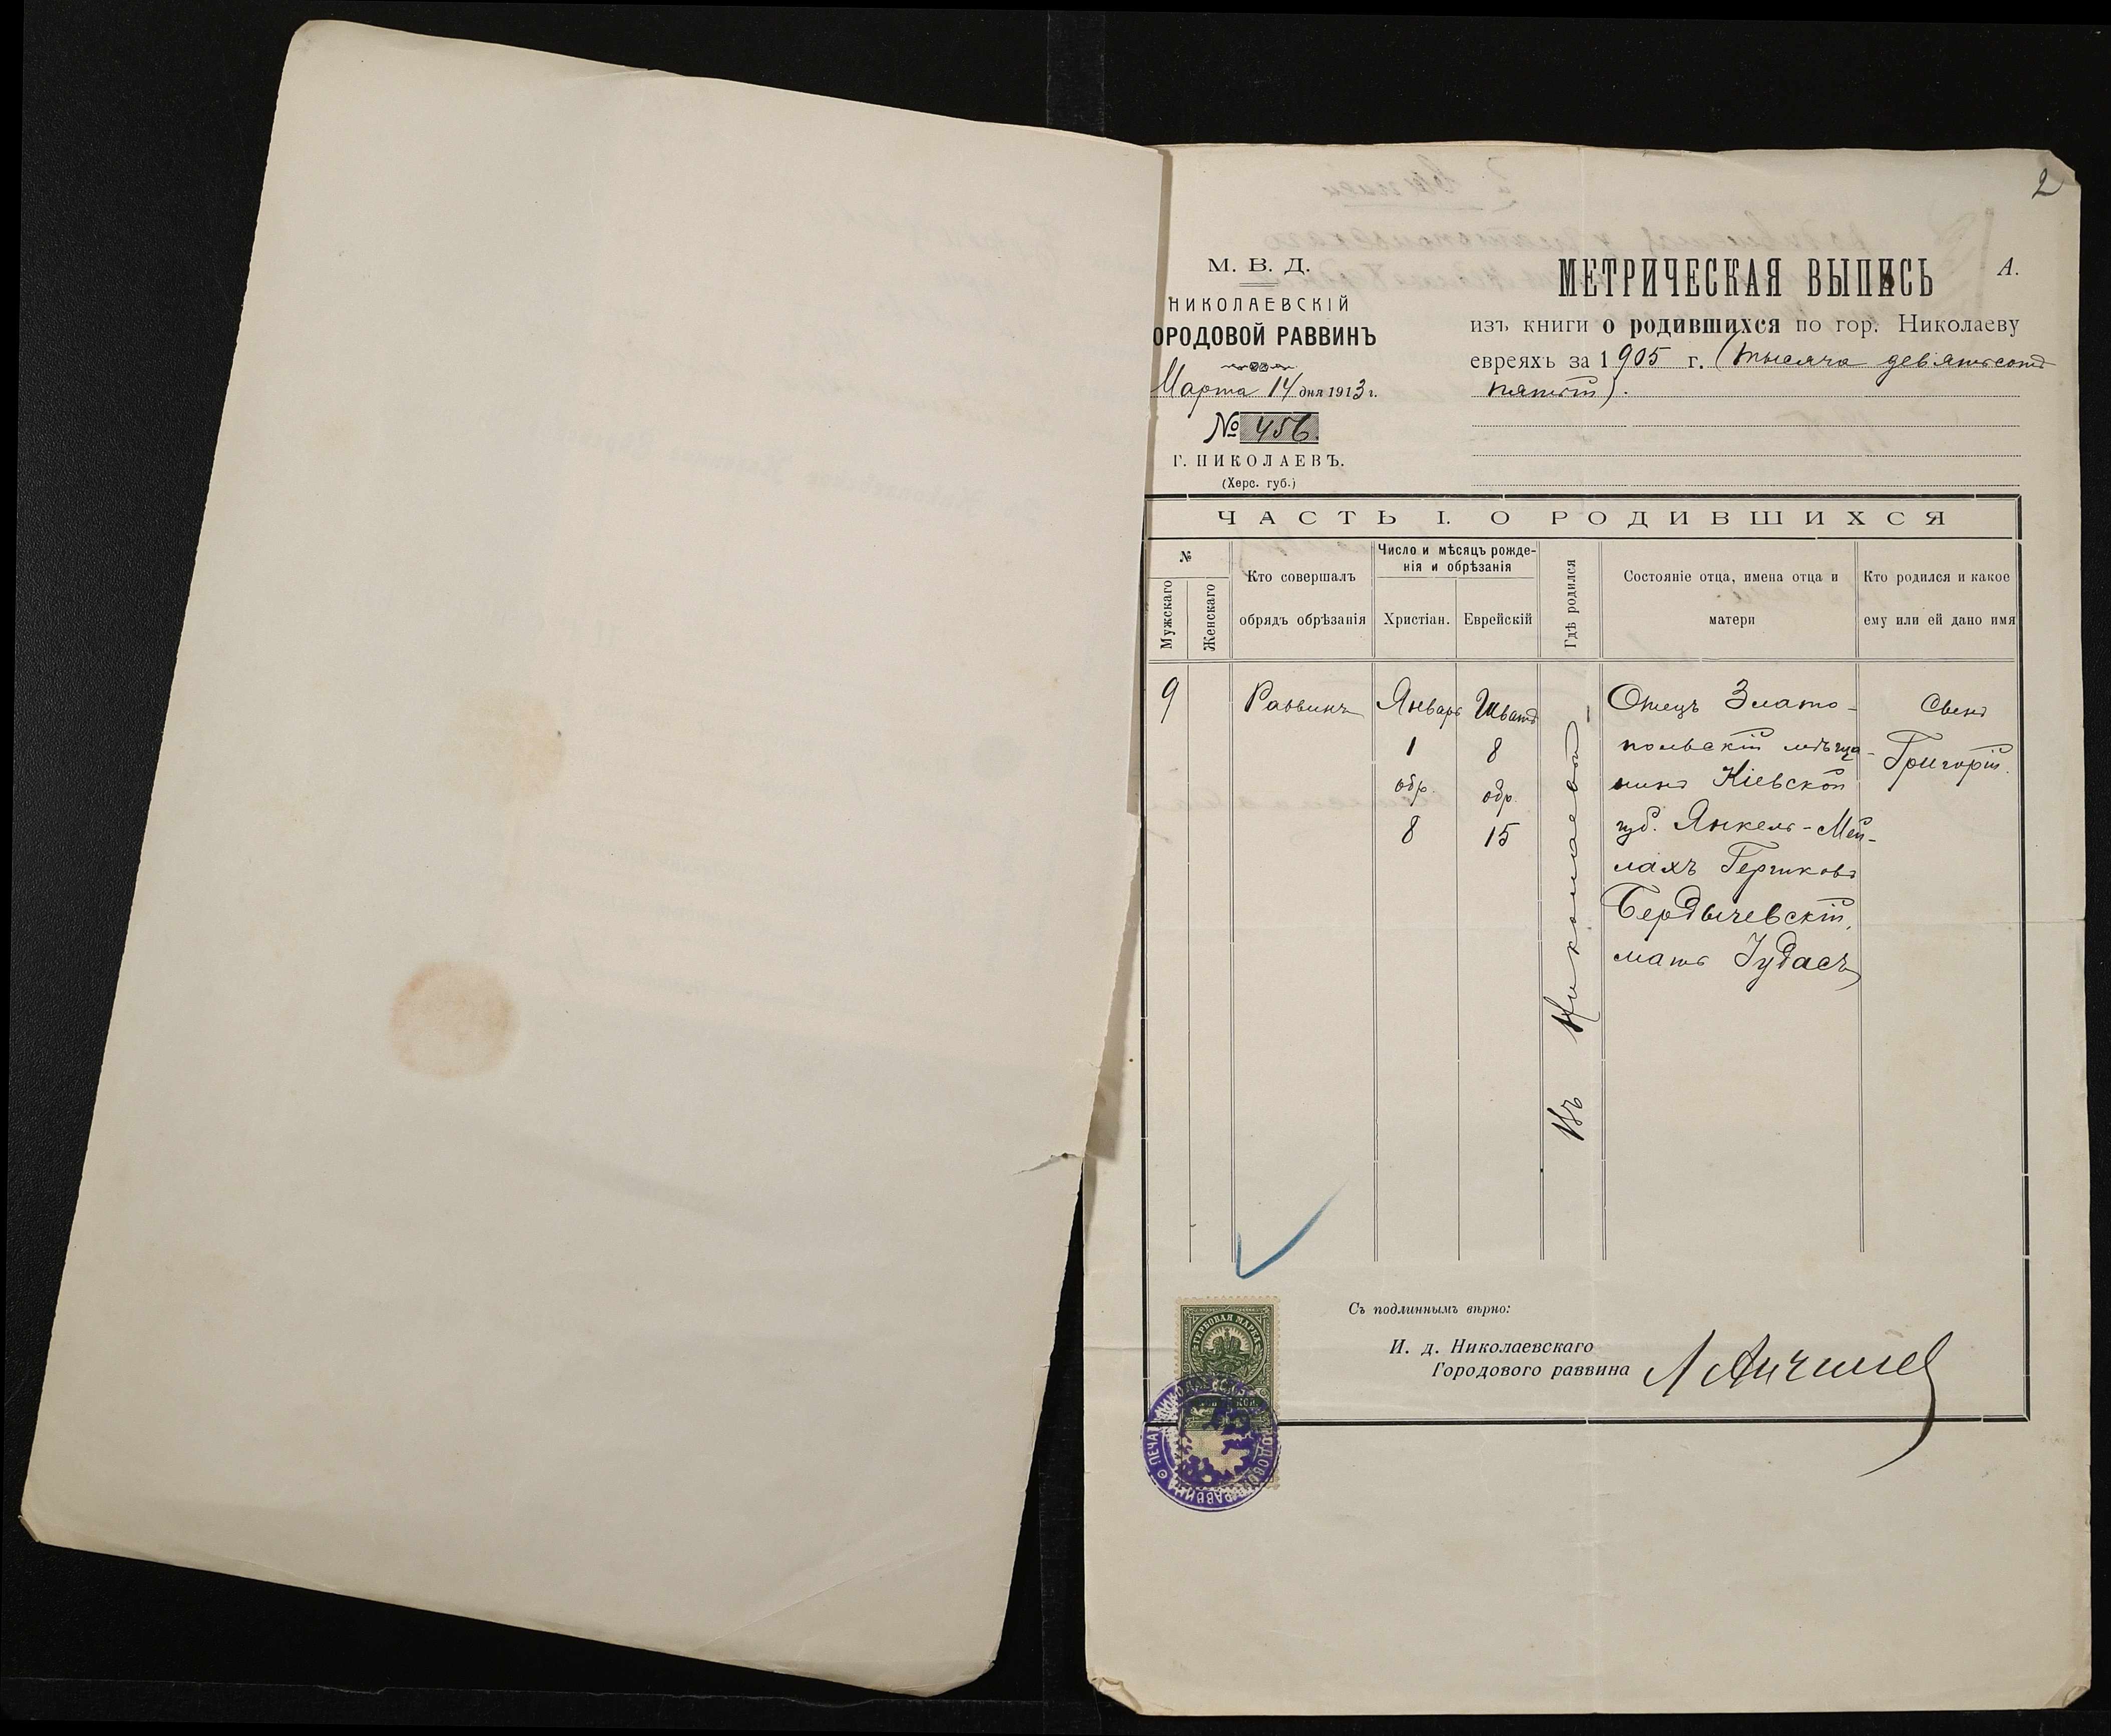 2
М. В. Д.
НИКОЛАЕВСКІЙ
ОРОДОВОЙ РАВВИНЪ
Марта 14 дня 1913 г.
№ 456
Г. НИКОЛАЕВЪ.
(Херс. губ.)
МЕТРИЧЕСКАЯ ВЫПИСЬ
А.
изъ книги о родившихся по гор. Николаеву
евреяхъ за 1905 г. (тысяча девятьсотъ
пятый).
ЧАСТЬ I. О РОДИВШИХСЯ
№
Мужскаго
Женскаго
Кто совершалъ
обрядъ обрѣзанія
Число и мѣсяцъ рожде-
нія и обрѣзанія
Христіан.
Еврейскій
Гдѣ родился
Состояніе отца, имена отца и
матери
Кто родился и какое
ему или ей дано имя
9
Раввинъ
Январь
1
обр.
8
Шватъ
8
обр.
15
Въ Николаевѣ
Отецъ Злато-
польскій мѣща-
нинъ Кіевской
губ. Янкель-Мей-
лахъ Гершковъ
Бердычевскій,
мать Іудасъ
Сынъ
Григорій.
Съ подлиннымъ вѣрно:
И. д. Николаевскаго
Городового раввина
ГЕРБОВАЯ МАРКА
ПЕЧАТЬ НИКОЛАЕВСКАГО ГОРОДОВОГО РАВВИНА